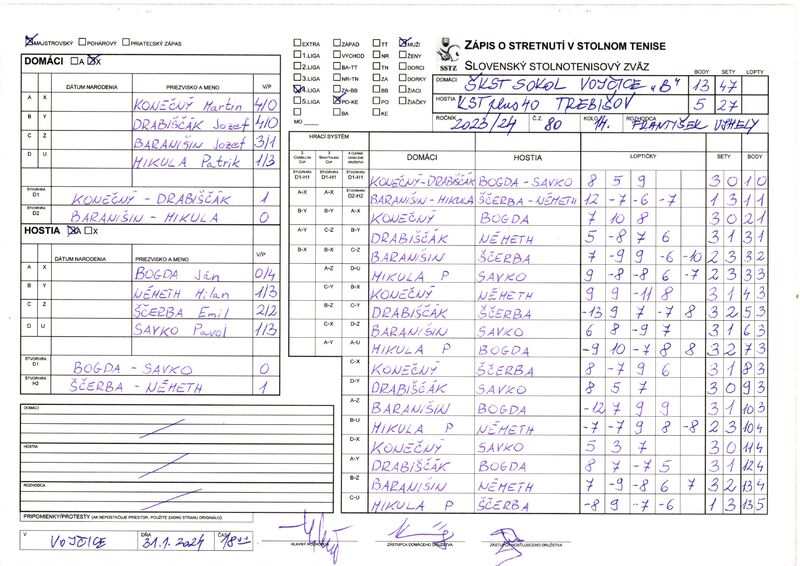 ☒ MAJSTROVSKÝ ☐ POHÁROVÝ ☐ PRIATEĽSKÝ ZÁPAS
DOMÁCI ☐A ☒X
DÁTUM NARODENIA PRIEZVISKO A MENO V/P
A X KONEČNÝ Martin 4/0
B Y DRABIŠČÁK Jozef 4/0
C Z BARANIŠIN Jozef 3/1
D U MIKULA Patrik 1/3
ŠTVORHRA D1 KONEČNÝ - DRABIŠČÁK 1
ŠTVORHRA D2 BARANIŠIN - MIKULA 0
HOSTIA ☒A ☐X
DÁTUM NARODENIA PRIEZVISKO A MENO V/P
A X BOGDA Ján 0/4
B Y NÉMETH Milan 1/3
C Z ŠČERBA Emil 2/2
D U SAVKO Pavol 1/3
ŠTVORHRA D1 BOGDA - SAVKO 0
ŠTVORHRA H2 ŠČERBA - NÉMETH 1
DOMÁCI
HOSTIA
ROZHODCA
PRIPOMIENKY/PROTESTY (AK NEPOSTAČUJE PRIESTOR, POUŽITE ZADNÚ STRANU ORIGINÁLU)
V VOJČICE DŇA 31.1.2024 ČAS 18:00
☐EXTRA ☐ZÁPAD ☐TT ☒MUŽI
☐1.LIGA ☐VÝCHOD ☐NR ☐ŽENY
☐2.LIGA ☐BA-TT ☐TN ☐DORCI
☐3.LIGA ☐NR-TN ☐ZA ☐DORKY
☒4.LIGA ☐ZA-BB ☐BB ☐ŽIACI
☐5.LIGA ☒PO-KE ☐PO ☐ŽIAČKY
☐ ☐BA ☐KE
MO
SSTZ
ZÁPIS O STRETNUTÍ V STOLNOM TENISE
SLOVENSKÝ STOLNOTENISOVÝ ZVÄZ
BODY SETY LOPTY
DOMÁCI ŠKST SOKOL VOJČICE "B" 13 47
HOSTIA KST plus40 TREBIŠOV 5 27
ROČNÍK 2023/24 Č.Z. 80 KOLO 14. ROZHODCA FRANTIŠEK UJHELY
HRACÍ SYSTÉM
DOMÁCI HOSTIA LOPTIČKY SETY BODY
ŠTVORHRA D1-H1 ŠTVORHRA D1-H1 ŠTVORHRA D1-H1 KONEČNÝ-DRABIŠČÁK BOGDA-SAVKO 8 5 9 3 0 1 0
A-X A-X ŠTVORHRA D2-H2 BARANIŠIN-MIKULA ŠČERBA-NÉMETH 12 -7 -6 -7 1 3 1 1
B-Y B-Y A-X KONEČNÝ BOGDA 7 10 8 3 0 2 1
A-Y C-Z B-Y DRABIŠČÁK NÉMETH 5 -8 7 6 3 1 3 1
B-X B-X C-Z BARANIŠIN ŠČERBA 7 -9 9 -6 -10 2 3 3 2
A-Z D-U MIKULA P SAVKO 9 -8 -8 6 -7 2 3 3 3
C-Y B-X KONEČNÝ NÉMETH 9 9 -11 8 3 1 4 3
B-Z C-Y DRABIŠČÁK ŠČERBA -13 9 7 -7 8 3 2 5 3
C-X D-Z BARANIŠIN SAVKO 6 8 -9 7 3 1 6 3
A-Y A-U MIKULA P BOGDA -9 10 -7 8 8 3 2 7 3
C-X KONEČNÝ ŠČERBA 8 -7 9 6 3 1 8 3
D-Y DRABIŠČÁK SAVKO 8 5 7 3 0 9 3
A-Z BARANIŠIN BOGDA -12 7 9 9 3 1 10 3
B-U MIKULA P NÉMETH -7 -7 9 8 -8 2 3 10 4
D-X KONEČNÝ SAVKO 5 3 7 3 0 11 4
A-Y DRABIŠČÁK BOGDA 8 7 -7 5 3 1 12 4
B-Z BARANIŠIN NÉMETH 7 -9 -8 6 7 3 2 13 4
C-U MIKULA P ŠČERBA -8 9 -7 -6 1 3 13 5
HLAVNÝ ROZHODCA ZÁSTUPCA DOMÁCEHO DRUŽSTVA ZÁSTUPCA HOSŤUJÚCEHO DRUŽSTVA